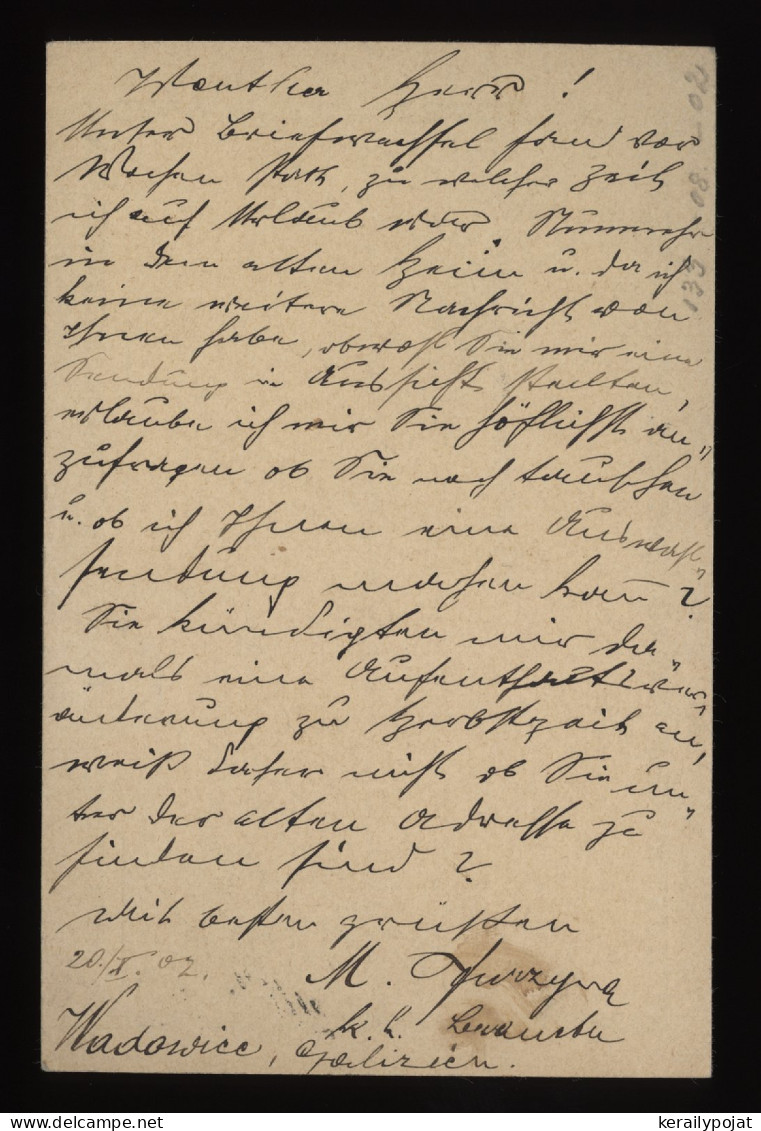 Werther Herr!
Unser Briefwechsel fand vor
Wochen statt, zu welcher Zeit
ich auf Urlaub war. Nunmehr
in dem alten Heim u. da ich
keine weitere Nachricht von
Ihnen habe, obwohl Sie mir eine
Sendung in Aussicht stellten,
erlaube ich mir Sie höflichst an„
zufragen ob Sie noch tauschen
u. ob ich Ihnen eine Auswahl„
sendung machen kann?
Sie kündigten mir da„
mals eine Aufenthaltsver„
änderung zu Herbstzeit an,
weiß daher nicht ob Sie un„
ter der alten Adresse zu
finden sind?
Mit besten Grüßen
20./X. 02. M.
k. k. Beamter
Wadowice, Galizien.
133 08. - 02
kerailypojat